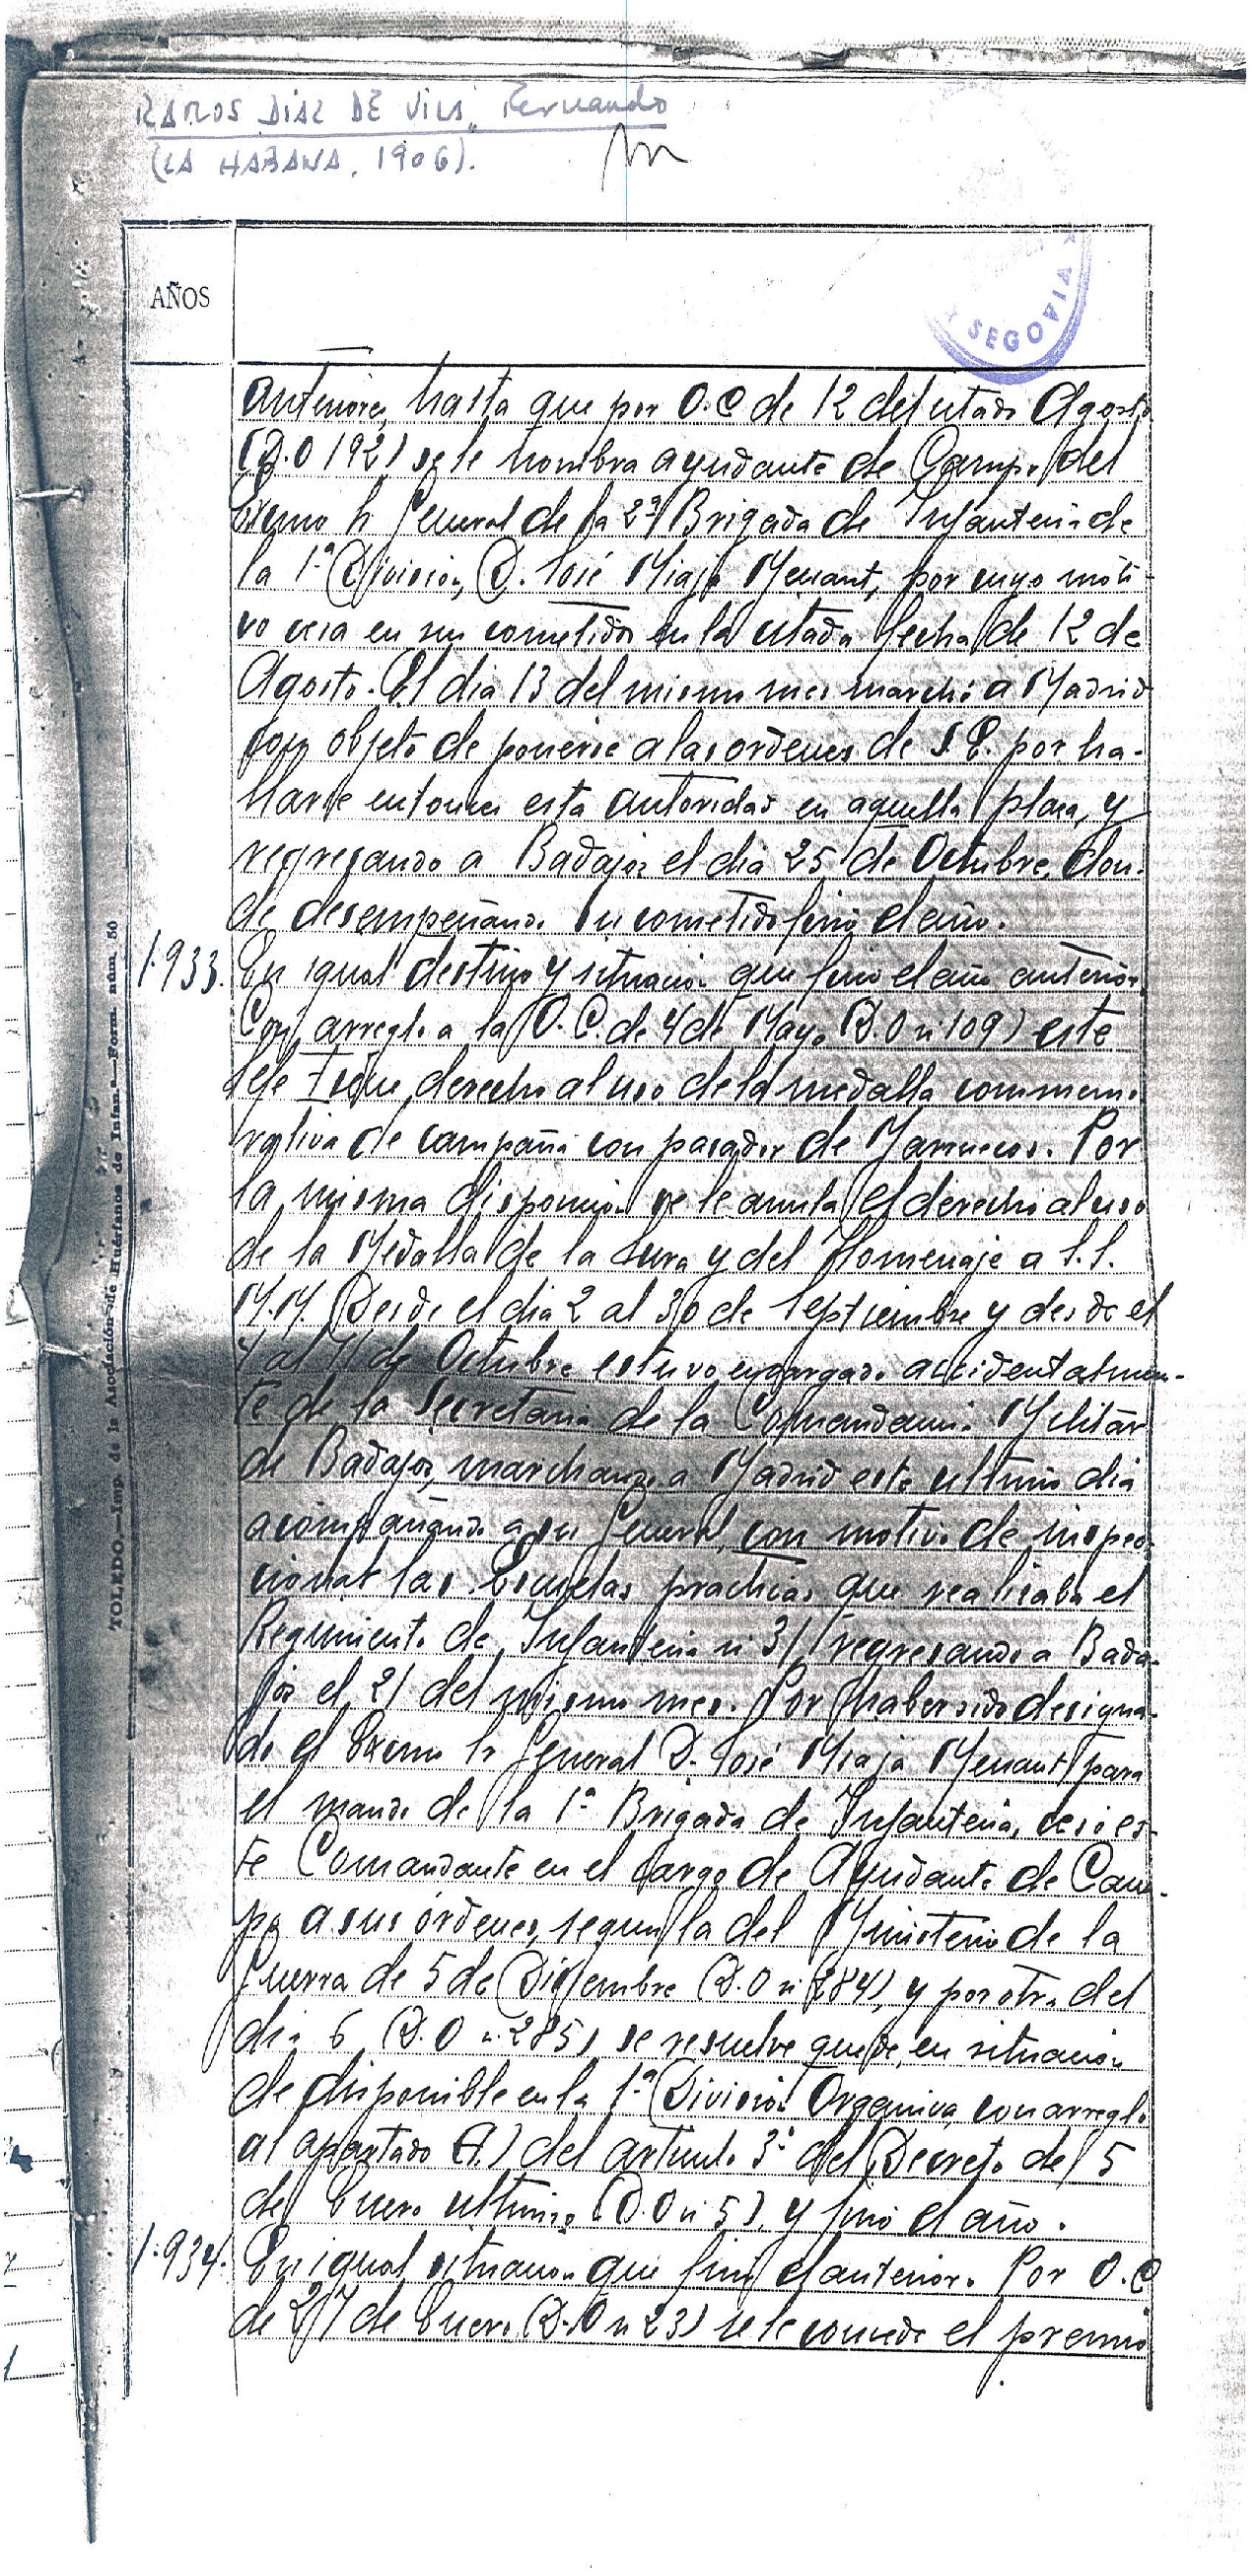 RAMOS DIAZ DE VILA, Fernando
(LA HABANA, 1906).
SEGOVIA
AÑOS
anterior, hasta que por O.C de 12 del citado Agosto
(D.O 192) se le nombra ayudante de Campo del
Excmo Sr General de la 2ª Brigada de Infanteria de
la 1ª División, D. José Miaja Menant, por cuyo moti-
vo cesa en su cometido en la citada fecha de 12 de
Agosto. El dia 13 del mismo mes marchó a Madrid
con objeto de ponerse a las ordenes de S.E. por ha-
llarse entonces esta autoridad en aquella plaza, y
regresando a Badajoz el dia 25 de Octubre, don-
de desempeñando su cometido finó el año.
1.933. En igual destino y situación que finó el año anterior.
Con arreglo a la O.C. de 4 de Mayo (D.O nº 109) este
Jefe tiene derecho al uso de la medalla conmemo-
rativa de campaña con pasador de Marruecos. Por
la misma disposición se le anula el derecho al uso
de la Medalla de la Jura y del Homenaje a S.S.
M.M. Desde el dia 2 al 30 de Septiembre y desde el
4 al 11 de Octubre estuvo encargado accidentalmen-
te de la Secretaria de la Comandancia Militar
de Badajoz, marchando a Madrid este ultimo dia
acompañando a su General, con motivo de inspec-
cionar las Escuelas practicas que realizaba el
Regimiento de Infanteria nº 31, regresando a Bada-
joz el 21 del mismo mes. Por haber sido designa-
do el Excmo Sr General D. José Miaja Menant para
el mando de la 1ª Brigada de Infanteria, cesó es-
te Comandante en el cargo de Ayudante de Cam-
po a sus órdenes, segun la del Ministerio de la
Guerra de 5 de Diciembre (D.O nº 284), y por otra del
dia 6 (D.O nº 285) se resuelve quede en situación
de disponible en la 1ª División Organica con arreglo
al apartado A) del articulo 3º del Decreto de 5
de Enero ultimo (D.O nº 5), y finó el año.
1.934. En igual situación que finó el anterior. Por O.C
de 27 de Enero (D.O nº 23) se le concede el premio
TOLEDO.—Imp. de la Asociación de Huérfanos de Infan.ª—Form. núm. 50